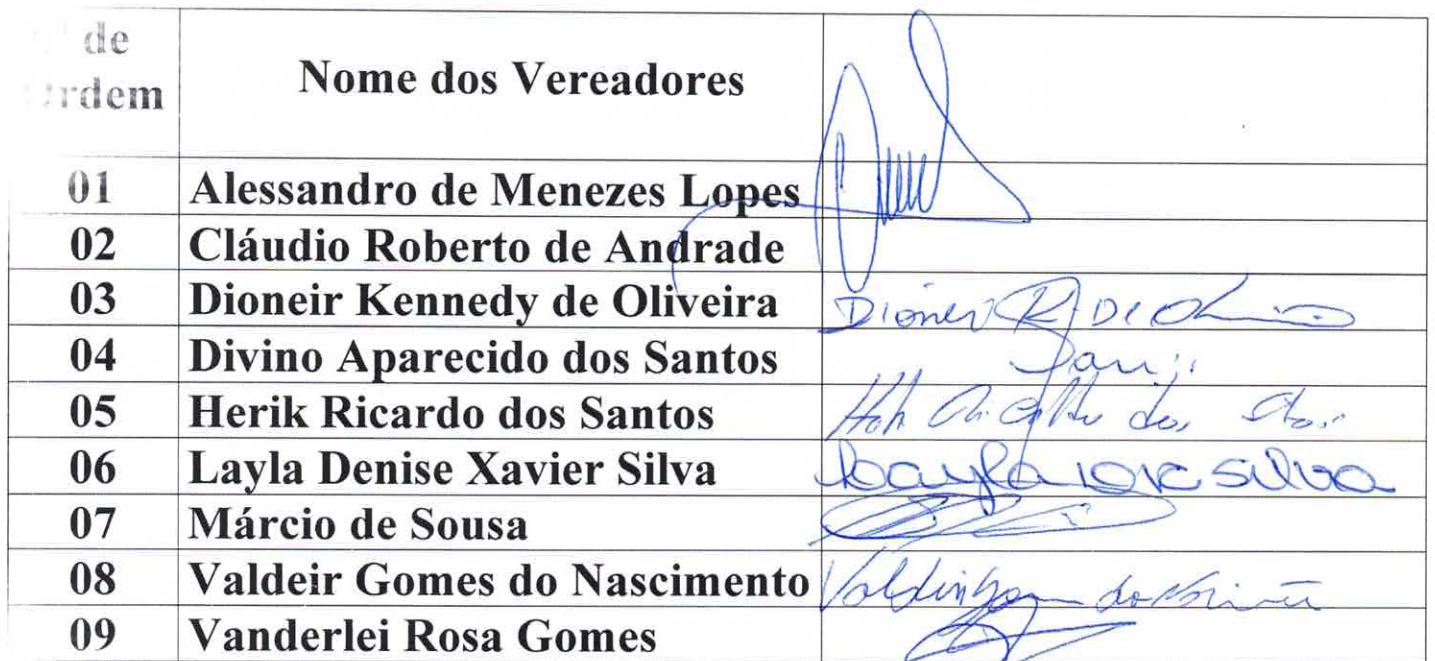 Nº de
Ordem
Nome dos Vereadores
01 Alessandro de Menezes Lopes
02 Cláudio Roberto de Andrade
03 Dioneir Kennedy de Oliveira
04 Divino Aparecido dos Santos
05 Herik Ricardo dos Santos
06 Layla Denise Xavier Silva Layla DX Silva
07 Márcio de Sousa
08 Valdeir Gomes do Nascimento
09 Vanderlei Rosa Gomes